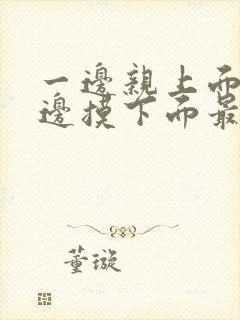 一邊親上面
邊摸下面最
董璇